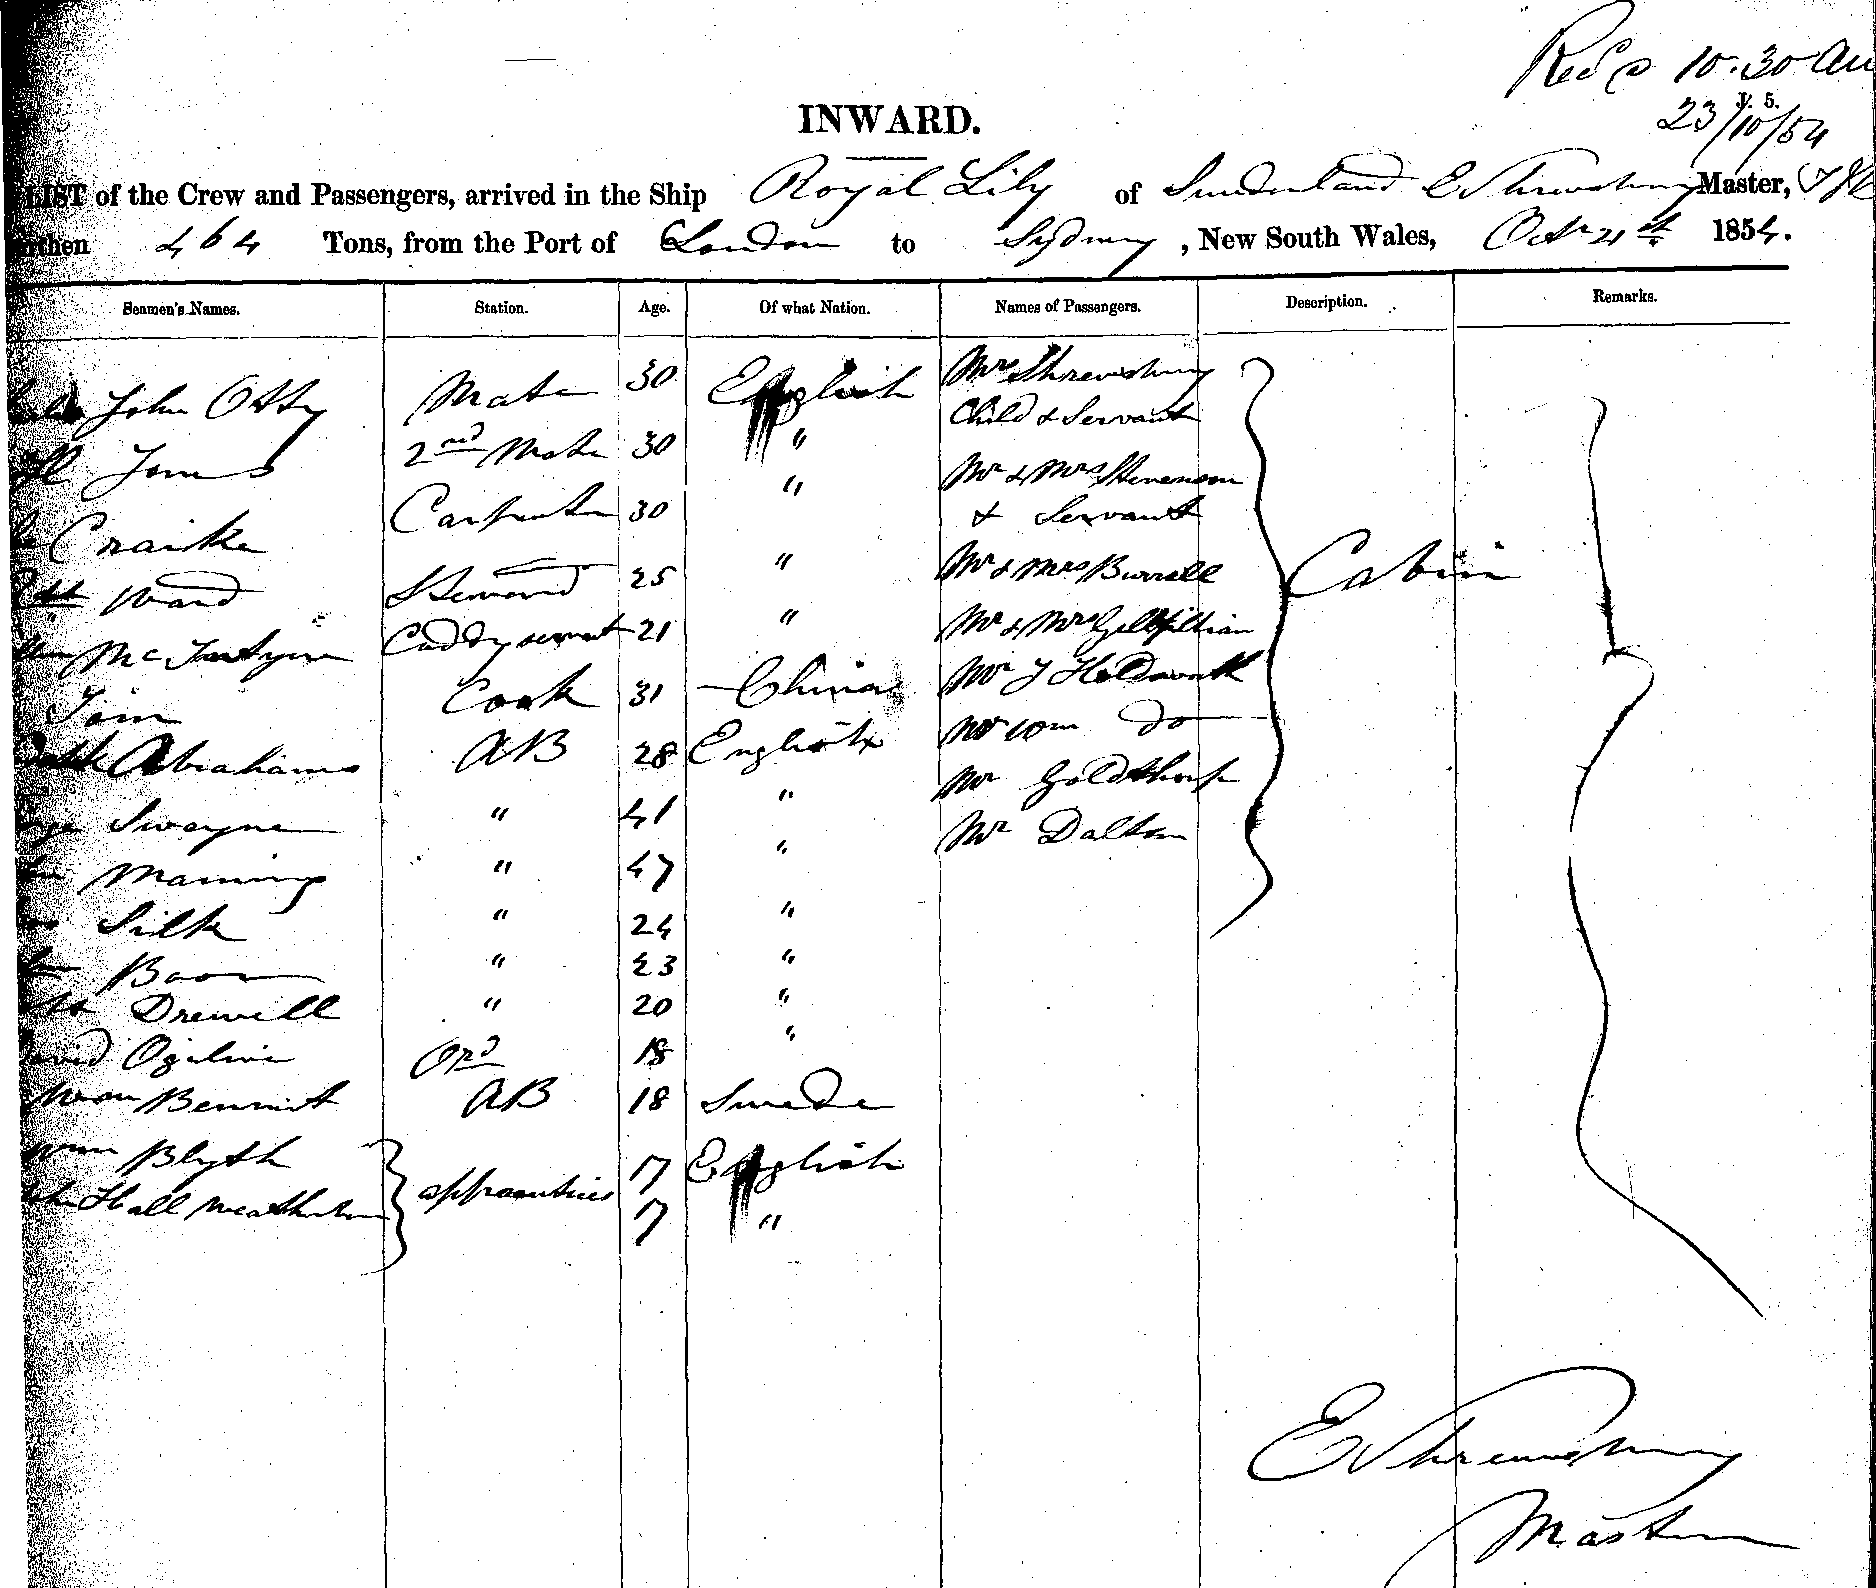 Recd 10.30 am
23/10/54
V. 5.
INWARD.
LIST of the Crew and Passengers, arrived in the Ship Royal Lily of Sunderland E Shrewsbury Master,
464 Tons, from the Port of London to Sydney, New South Wales, Octr 21st 1854.
Seamen's Names. Station. Age. Of what Nation. Names of Passengers. Description. Remarks.
John Otty Mate 30 English Mrs Shrewsbury
Child & Servant
Jones 2nd Mate 30 "
Mr & Mrs Stevenson
& Servant
Craike Carpenter 30 "
Ward Steward 25 " Mr & Mrs Burrell Cabin
McIntyre Cuddy servant 21 " Mr & Mrs
Cook 31 China Mr J Holdsworth
Abrahams AB 28 English Mr Wm do
Swayne " 41 " Mr Goldthorp
Manning " 47 " Mr Dalton
Silk " 24 "
Boon " 23 "
Drewell " 20 "
David Ogilvie Ord 18 "
Bennit AB 18 Swede
Wm Blyth apprentices 17 English
Hall 17 "
E Shrewsbury
Master